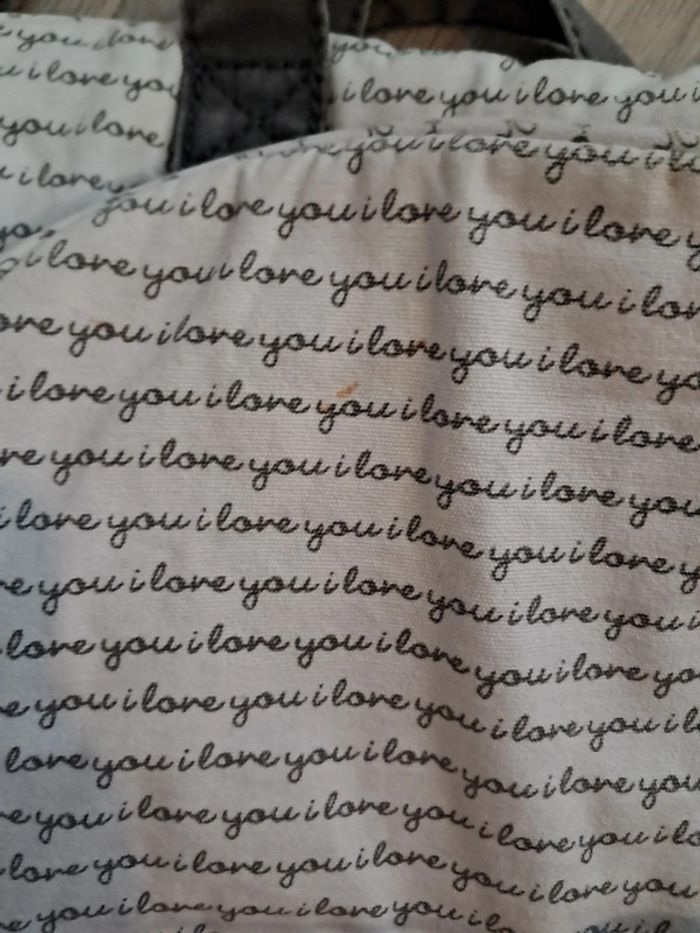 you i love you
i love you i love you i love you
you i love you i love you
i love you i love you i love
i love you i love you i love you i
you i love you i love you i love
i love you i love you i love you i love
you i love you i love you i love you
i love you i love you i love you i love
you i love you i love you i
love you i love you i love you
you i love you i love you i
love you i love you i love you i love you
you i love you i love you i
love you i love you i love you
you i love i love you i